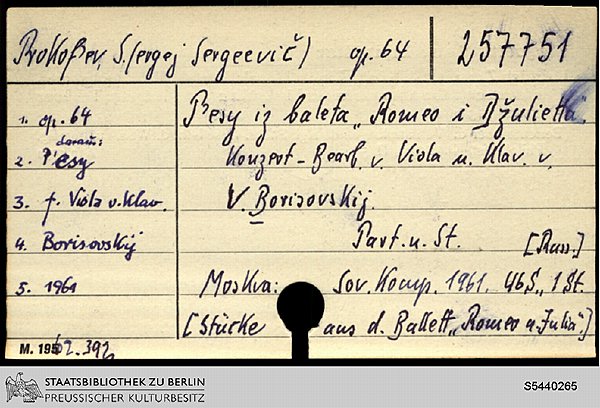 Prokof'ev, S.(ergej Sergeevič) op. 64 257751
P'esy iz baleta „Romeo i Džuletta“.
1. op. 64
daraus:
2. P'esy
Konzert-Bearb. v. Viola u. Klav. v.
3. f. Viola u. Klav.
V. Borisovskij.
4. Borisovskij
Part. u. St. [Russ.]
5. 1961
Moskva: Sov. Komp. 1961. 46 S., 1 St.
[Stücke aus d. Ballett „Romeo u. Julia“.]
M. 1962.392
STAATSBIBLIOTHEK ZU BERLIN
PREUSSISCHER KULTURBESITZ
S5440265